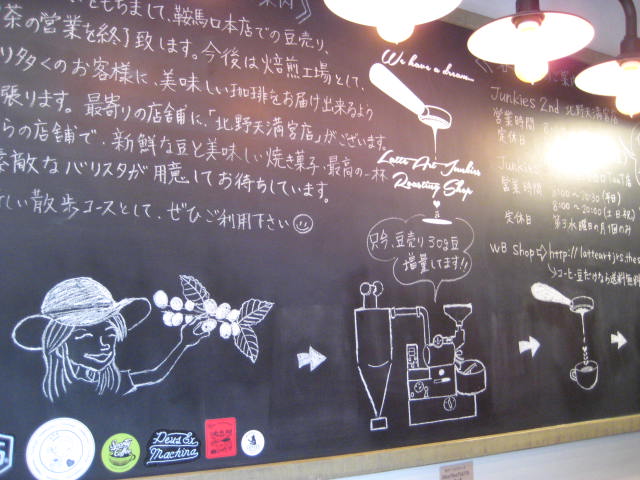 をもちまして、鞍馬口本店での豆売り、
茶の営業を終了致します。今後は焙煎工場として、
り多くのお客様に、美味しい珈琲をお届け出来るよう
張ります。最寄りの店舗に、「北野天満宮店」がございます。
らの店舗で、新鮮な豆と美味しい焼き菓子、最高の一杯
素敵なバリスタが用意してお待ちしています。
しい散歩コースとして、ぜひご利用下さい
We have a dream...
Latte Art Junkies
Roasting Shop
只今、豆売り30g豆
増量してます!!
Junkies 2nd 北野天満宮店
営業時間
定休日
営業時間
8:00～20:30(平日)
8:00～20:00(土日祝)
定休日 第3水曜日の月1回のみ
WB Shop⇨http://latteartjrs.thes
↳コーヒー豆だけなら送料無料
Deus Ex
Machina